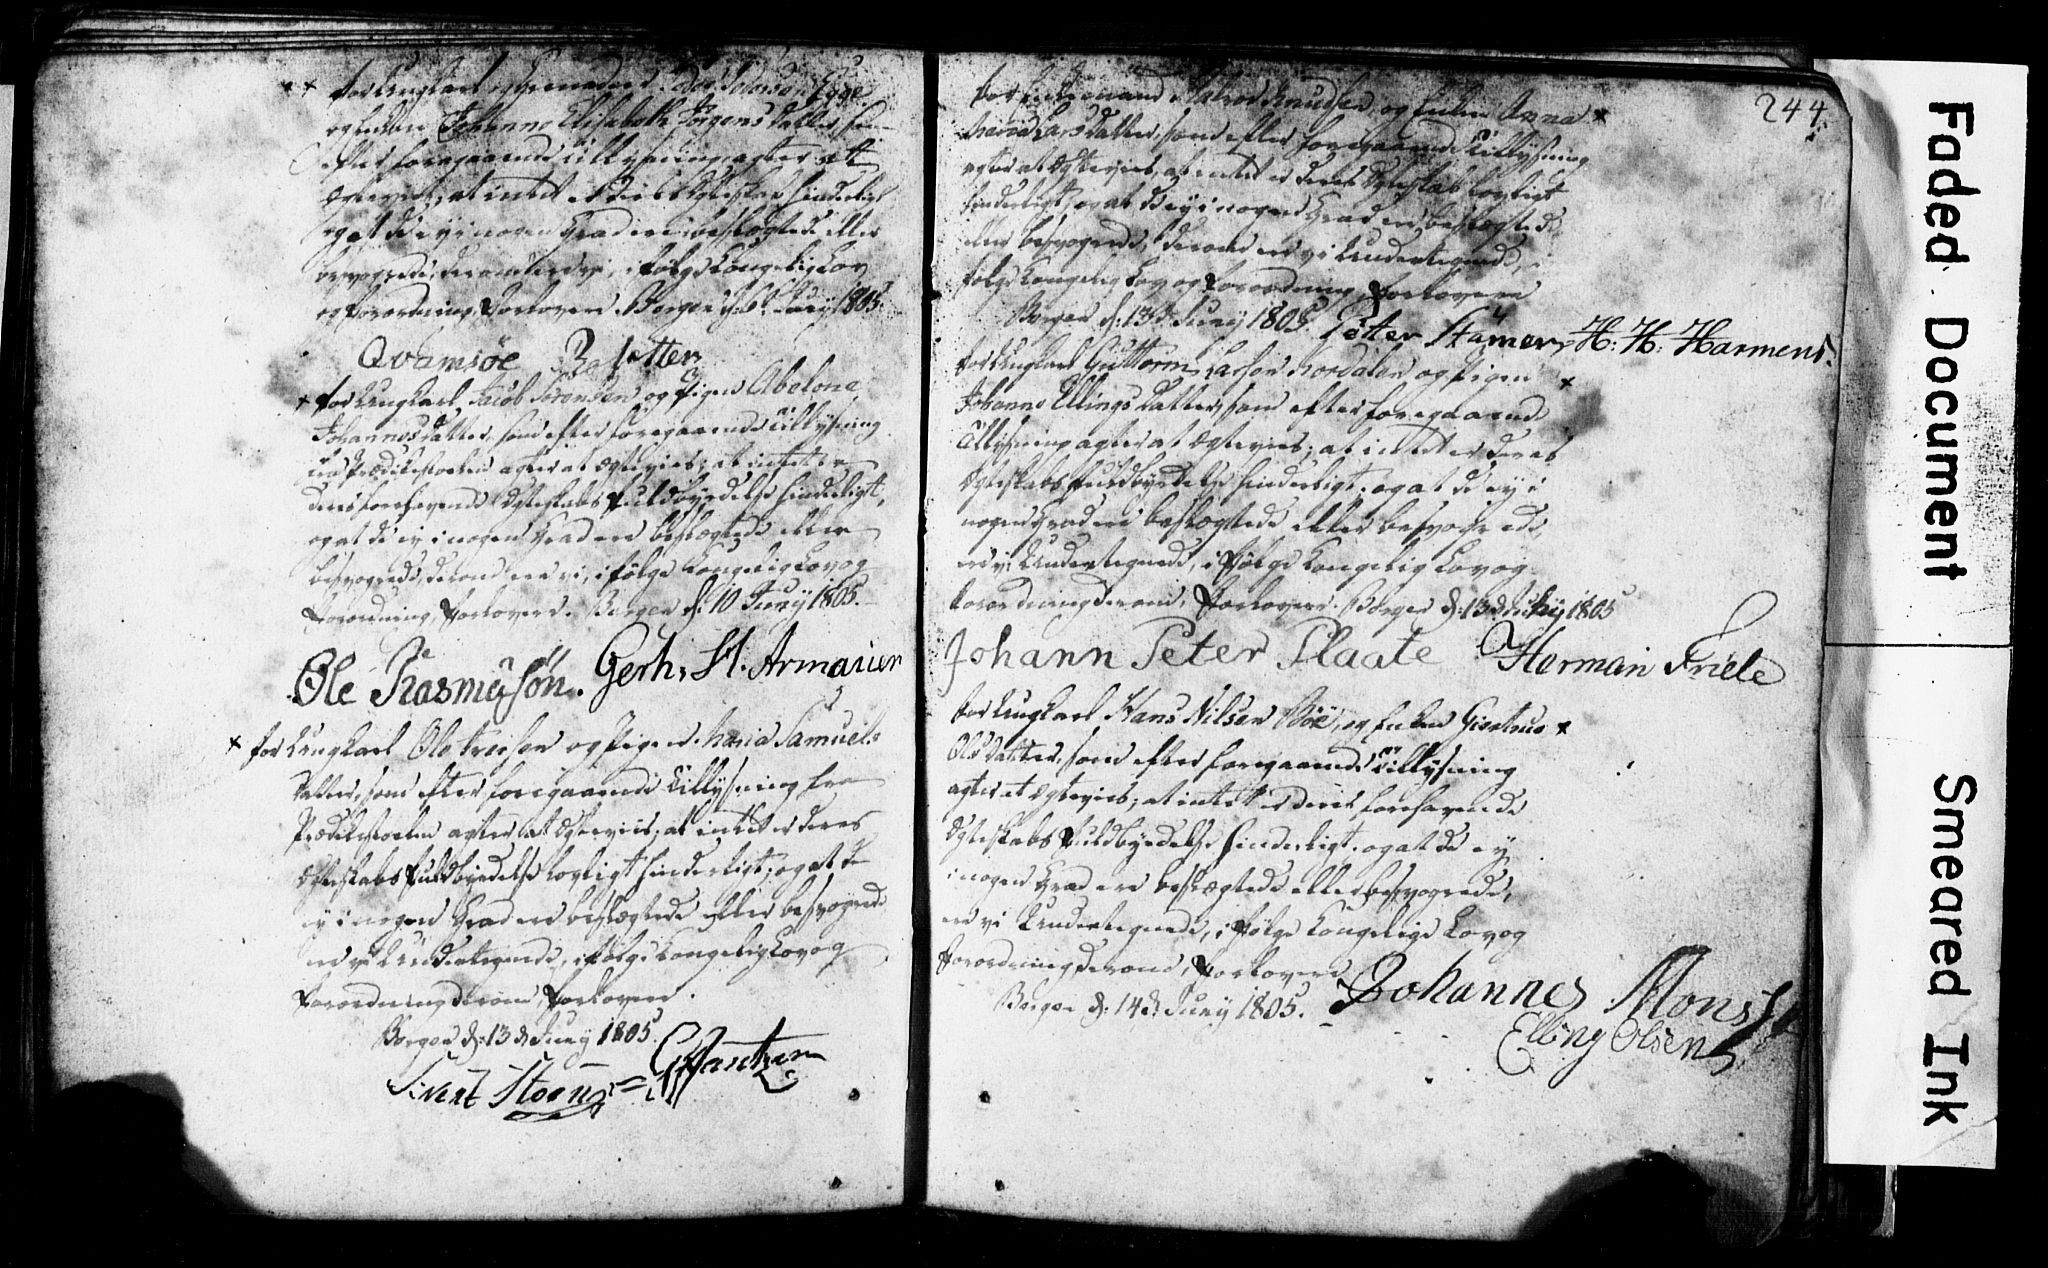 × for Ungkarl
og Enken Johanne Elisabeth Jørgensdatter, som
efter foregaaende Tillysning agter at
ægtevies, at intet er deres Ægteskab hinderligt
og at de ey i nogen Grad ere beslægtede eller
besvogrede, derom ere vi, i følge Kongelig Lov
og Forordning, Forlovere. Bergen d: Juny 1805.
Qvamsöe
× for Ungkarl Jacob Sörensen og Pigen Abelone
Johannesdatter, som efter foregaaende Tillysning
fra Prædikestoelen agter at ægtevies; at intet er
deres forehavende Ægteskabs Fuldbyrdelse hinderligt,
og at de ey i nogen Grad ere beslægtede eller
besvogrede, derom ere vi, i følge Kongelig Lov og
Forordning, Forlovere. Bergen d: 10 Juny 1805.
Ole Rasmusön. Gerh. H. Armauer
× for Ungkarl Ole og Pigen Maria Samuels
datter, som efter foregaaende Tillysning fra
Prædikestoelen agter at ægtevies; at intet er deres
Ægteskabs Fuldbyrdelse lovligt hinderligt; og at de
ey i nogen Grad ere beslægtede eller besvogrede
ere vi Undertegnede, i følge Kongelig Lov og
Forordning derom, Forlovere.
Bergen d: 13 d Juny 1805.
Sivert
244
for Knudsen, og Enken Anna ×
Maria Larsdatter, som efter foregaaende Tillysning
agter at ægtevies, at intet er deres Ægteskab lovligt
hinderligt, og at de ey i nogen Grad ere beslægtede
eller besvogrede, derom ere vi Undertegnede, i
følge Kongelig Lov og Forordning, Forlovere
Bergen d: 13 d Juny 1805. Petter Stamer, H: H: Harmens.
for Ungkarl Guttorm Larsen og Pigen ×
Johanne Ellingsdatter, som efter foregaaende
Tillysning agter at ægtevies; at intet er deres
Ægteskabs Fuldbyrdelse hinderligt, og at de ey i
nogen Grad ere beslægtede eller besvogrede,
ere vi Undertegnede, i følge Kongelig Lov og
Forordning derom, Forlovere. Bergen d: 13 d Juny 1805
Johann Peter Plaate Herman Friele
for Ungkarl Hans Nilsen Böe, og Enken Giertrue ×
Olsdatter, som efter foregaaende Tillysning
agter at ægtevies; at intet er deres forehavende
Ægteskabs Fuldbyrdelse hinderligt, og at de ey
i nogen Grad ere beslægtede eller besvogrede,
ere vi Undertegnede, i følge Kongelige Lov og
Forordning derom, Forlovere
Bergen d: 14 d Juny 1805. Johannes
Elling Olsen
Faded Document
Smeared Ink